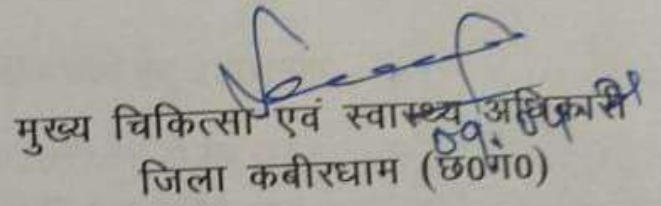 मुख्य चिकित्सा एवं स्वास्थ्य अधिकारी
जिला कबीरधाम (छ०ग०)